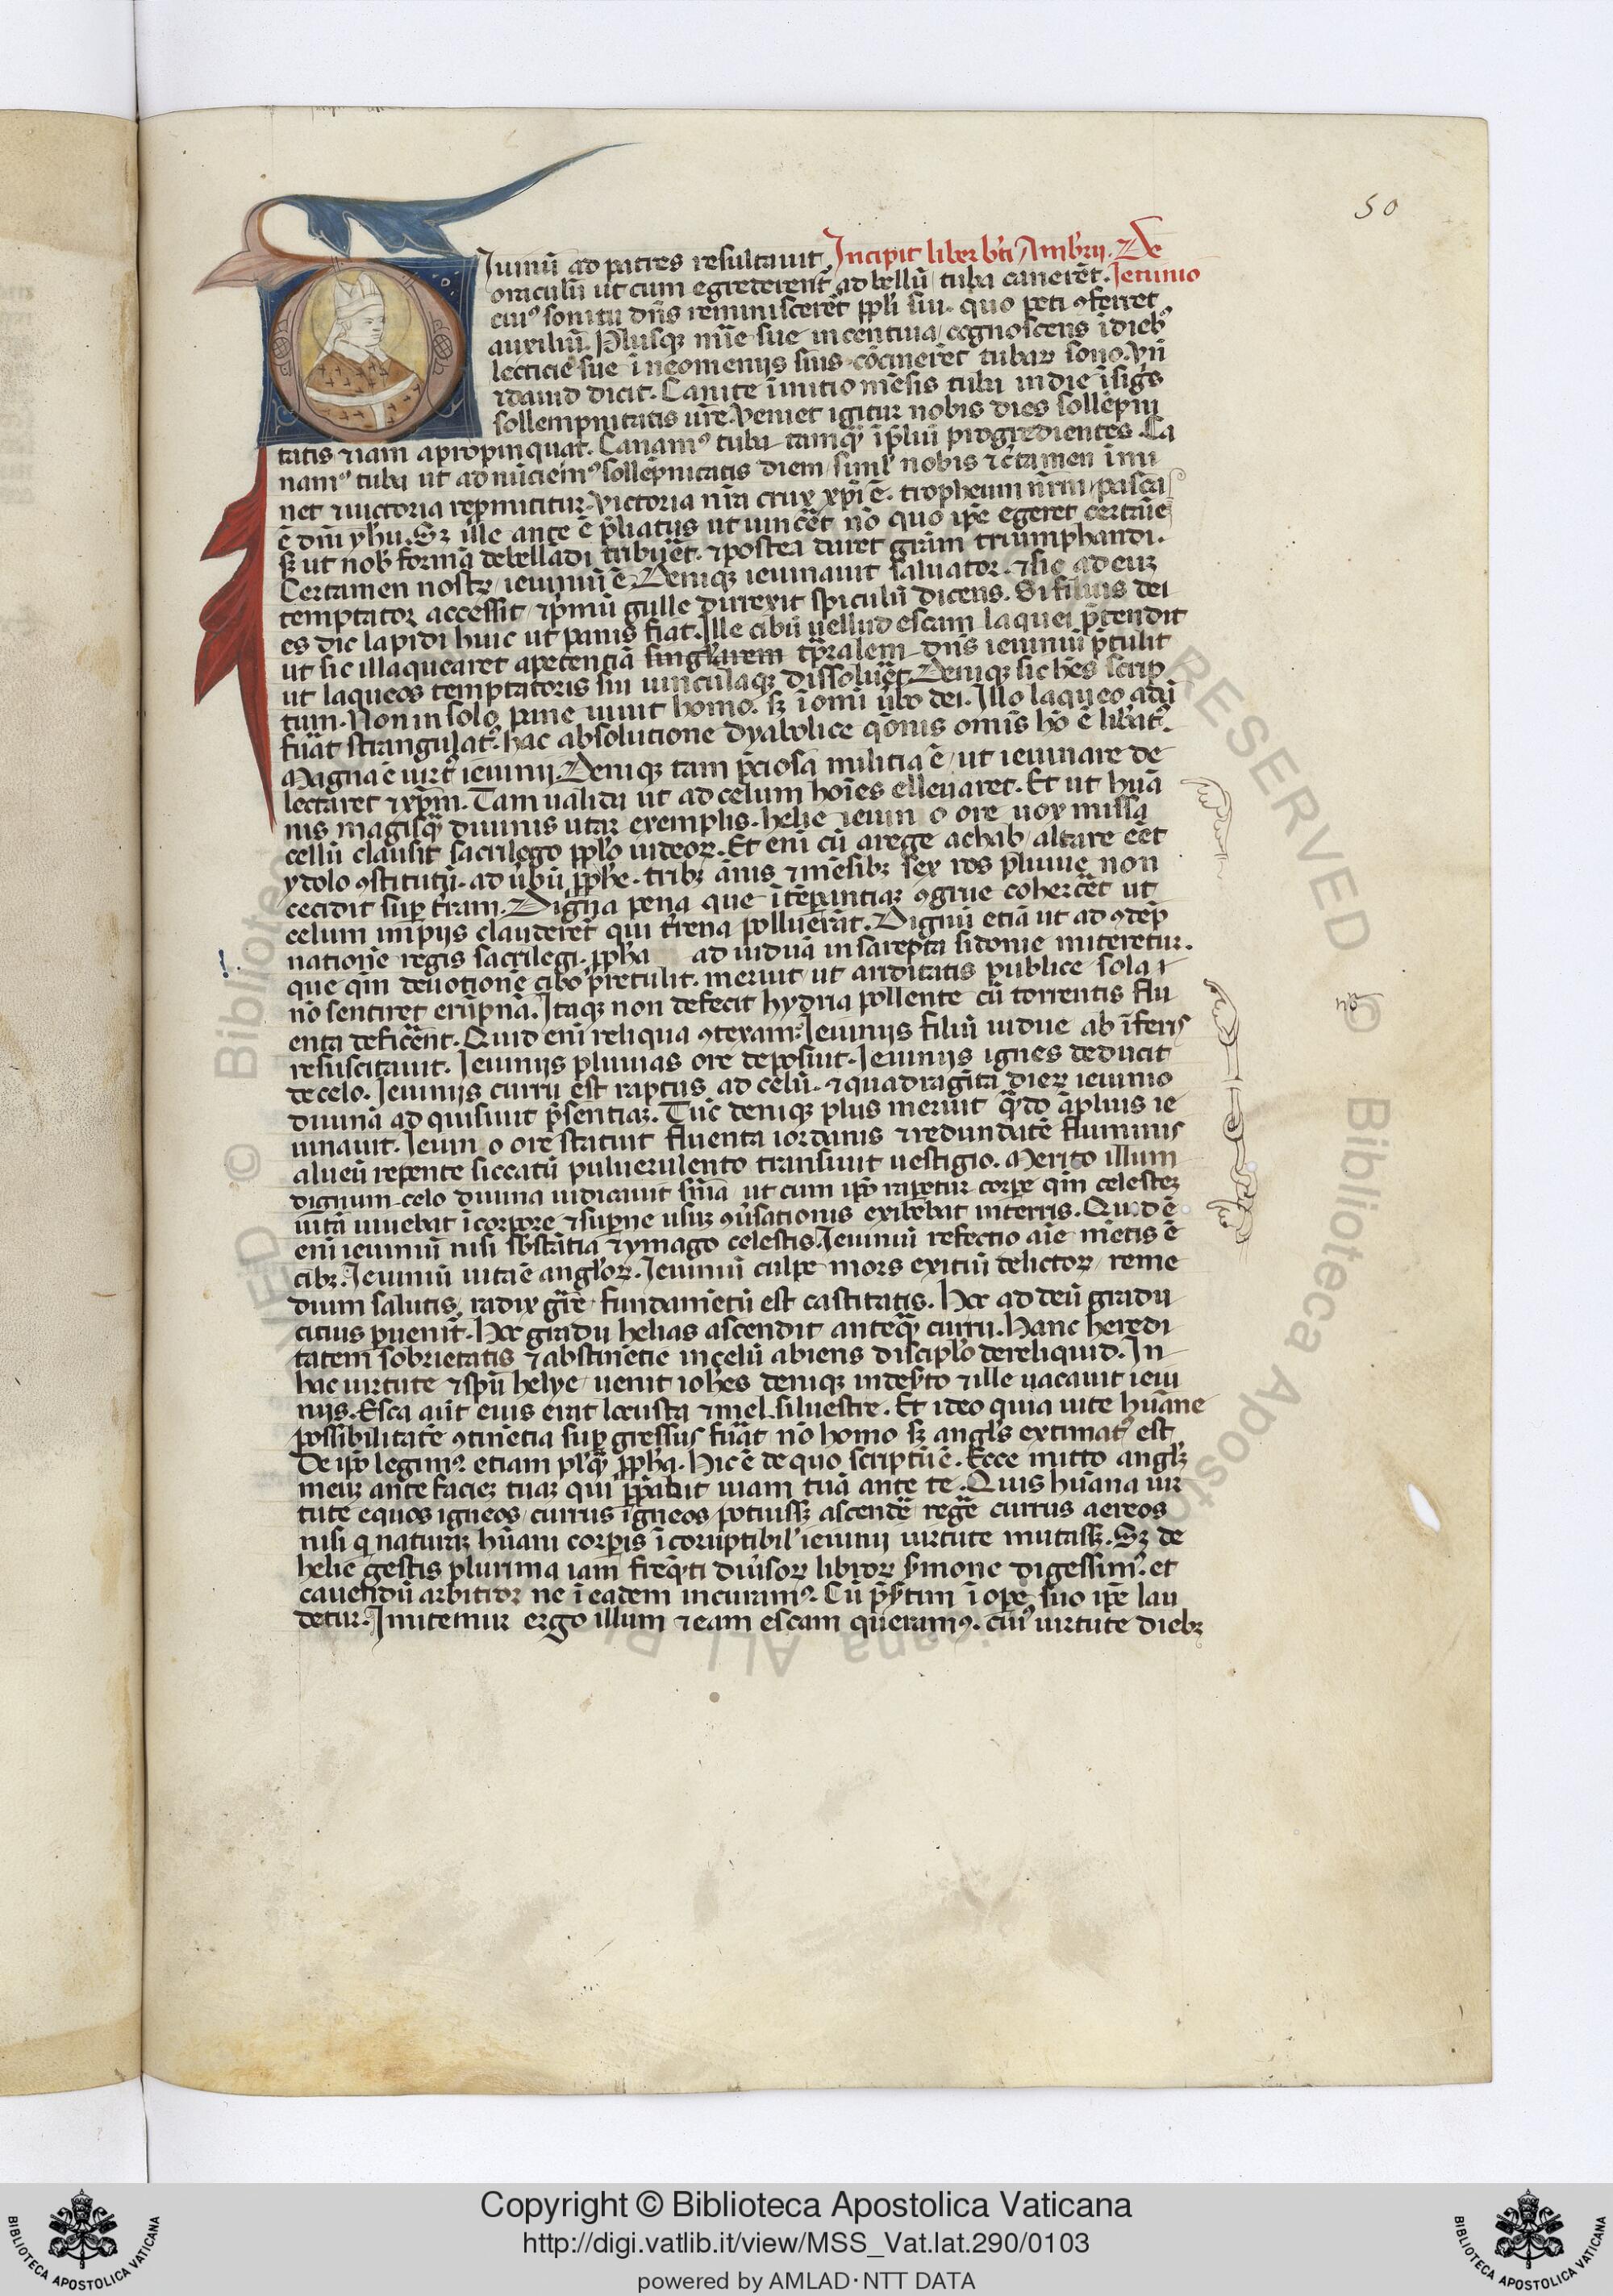 50
Incipit liber bti Ambrii. De
Ieiunio
Diuinū ad patres resultauit
oraculū ut cum egrederent̄ ad bellū tuba canerēt.
cui⁹ sonitu dn̄s reminisceret̄ ppl̄i sui. quo peti ꝯferret
auxiliū. Plusqꝫ mīe sue incentiua cognoscens ī dieb⁹
lecticie sue ī neomenijs suis cōcineret tubaꝝ sono. Vn̄
⁊ dauid dicit. Canite ī initio mēsis tuba in die īsigs
sollempnitatis ur̄e. Veniet igitur nobis dies sollēpni
tatis ⁊ iam apropinquat. Canam⁹ tuba tamqꝫ ī p̄liū progredientes. Ca
nam⁹ tuba ut ad nūciem⁹ sollēpnitatis diem simł nobis ⁊ c̄tamen īmi
net ⁊ uictoria repmittitur. Victoria nr̄a crux xp̄i ē. tropheum nr̄m pasca
ē dn̄i yhu. Sꝫ ille ante ē p̄liatus ut uinc̄et nō quo ip̄e egeret certaīe
sꝫ ut nob̄ formā debellādi tribuēt. ⁊ postea daret grām triumphandi.
Certamen nostꝝ ieiuniū ē. Deniqꝫ ieiunauit saluator. ⁊ sic ad eūꝫ
temptator accessit. ⁊ p̄mū gulle direxit spiculū dicens. Si filius dei
es dic lapidi huic ut panis fiat. Ille cibū uellud escam laquei p̄tendit
ut sic illaquearet apetenciā singłarem tp̄ralem. dn̄s ieiuniū p̄tulit
ut laqueos temptatoris sui uinculaqꝫ dissolu̅et. Deniqꝫ sic hēs scrip
tum. Non in solo pane uiuit homo. sꝫ ī omi ūbo dei. Illo laqueo adā
fūat strangulat⁹. hac absolucione dyabolice qōnis omīs hō ē libat⁹.
Magna ē uirt⁹ ieiunij. Deniqꝫ tam p̄ciosa militia ē. ut ieiunare de
lectaret ⁊ xp̄m. Tam ualida ut ad celum hoīes elleuaret. Et ut huā
nis magisqꝫ diuinis utar exemplis. helie ieiun o ore uox missa
cellū clausit sacrilego ppl̄o iudeoꝝ. Et eni cū a rege achab altare eēt
ydolo ꝯstitutū. ad ūbū ꝓphē. tribꝫ ānis ⁊ mēsibꝫ sex ros pluuie non
cecidit sup̄ tr̄am. Digna pena que ītēpantiaꝫ ꝯgrue cohercēt ut
celum impijs clauderet̄ qui tr̄ena polluerāt. Dignū etiā ut ad ꝯdēp
nationē regis sacrilegi. ꝓpha ad uiduā in sarepta sidonie miteretur.
que qm̄ deuotionē cibo p̄retulit. meruit ut ariditatis publice sola
nō sentiret erūpnā. Itaqꝫ non defecit hydria pollente cū torrentis flu
enta deficēnt. Quid eni reliqua ꝯtexam. Ieiunijs filiū uidue ab īferis
resuscitauit. Ieiunijs pluuias ore deposuit. Ieiunijs ignes deducit
de celo. Ieiunijs curru est raptus ad celū. ⁊ quadragīta dieꝝ ieiunio
diuinā ad quisiuit p̄sentiaꝫ. Tūc deniqꝫ plus meruit qn̄do āplius ie
iunauit. Ieiun o ore statuit fluenta iordanis ⁊ redundātē fluminis
alueū repente siccatū puluerulento transiuit uestigio. Merito illum
dignum celo diuina iudicauit sn̄ia ut cum ip̄o rapetur corpe qm̄ celesteꝫ
uitā uiuebat ī corpore ⁊ supne usuꝫ ꝯūsationis exibebat in terris. Quid ē
eni ieiuniū nisi sb̄stātia ⁊ ymago celestis. Ieiuniū refectio aīe mētis ē
cibꝫ. Ieiuniū uita ē angłoꝝ. Ieiuniū culpe mors exitiū delictoꝝ reme
dium salutis radix grē fundamētū est castitatis. Hoc ad deū gradu
citius puenit̄. Hoc gradu helias ascendit anteqꝫ curru. Hanc heredi
tatem sobrietatis ⁊ abstinētie in celū abiens discipl̄o dereliquid. In
hac uirtute ⁊ spū helye uenit ioh̄es deniqꝫ in des̄to ⁊ ille uacauit ieiu
nijs. Esca aūt eius erat locusta ⁊ mel siluestre. Et ideo quia uite hūane
possibilitatē ꝯtinētia sup̄ gressus fūat nō homo sꝫ angl̄s extimat⁹ est
De ip̄o legim⁹. etiam pl̄qꝫ ꝓpha. Hic ē de quo scriptū ē. Ecce mitto angl̄ꝫ
meūꝫ ante facieꝫ tuaꝫ qui p̄parabit uiam tuā ante te. Quis hūana uir
tute equos igneos currus igneos potuissꝫ ascendē regē currus aereos
nisi q naturaꝫ hūani corp̄is ī coruptibil̄ ieiunij uirtute mutassꝫ. Sꝫ de
helie gestis plurima iam freq̄nti diūsoꝝ libroꝝ s̄mone digessim⁹. et
cauendū arbitror ne ī eadem incuram⁹. Cū p̄s̄tim ī ope suo ip̄e lau
detur. Imitemur ergo illum ⁊ eam escam queram⁹. cui⁹ uirtute diebꝫ
Copyright © Biblioteca Apostolica Vaticana
http://digi.vatlib.it/view/MSS_Vat.lat.290/0103
powered by AMLAD·NTT DATA
BIBLIOTECA APOSTOLICA VATICANA
BIBLIOTECA APOSTOLICA VATICANA